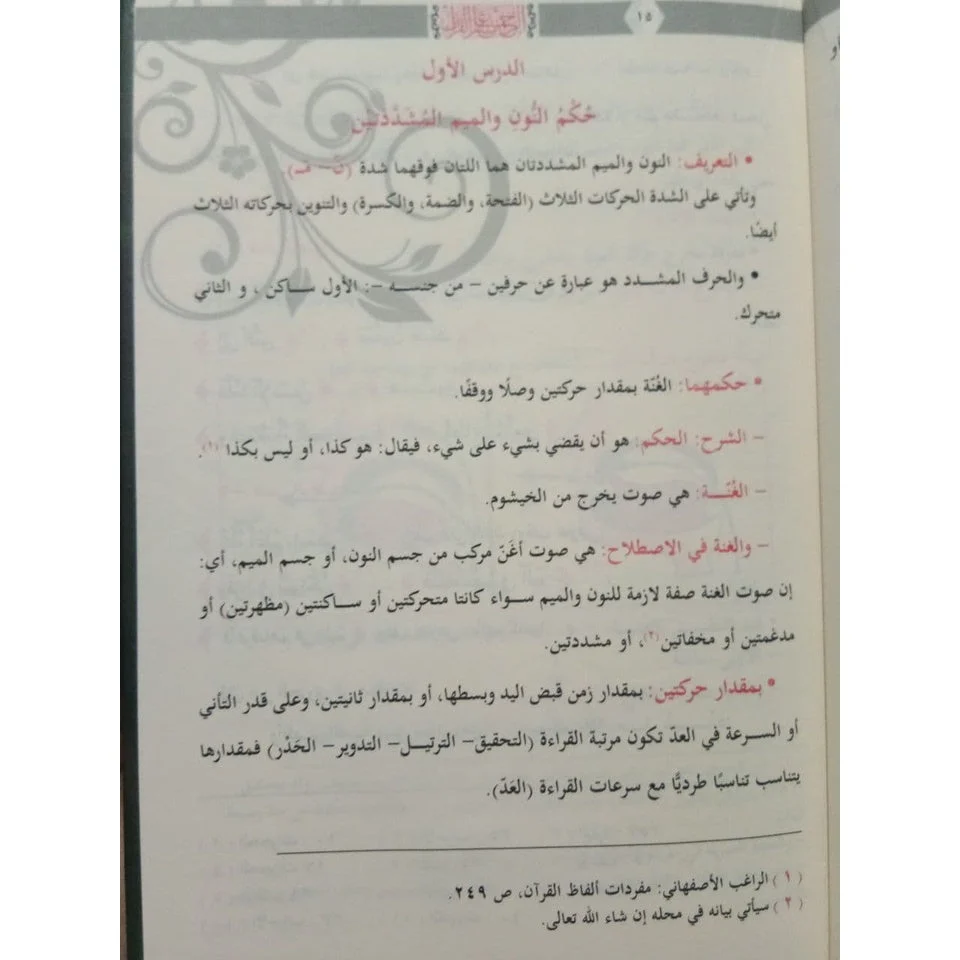 ١٥
الدرس الأول
حُكْمُ النُّونِ والميم المُشَدَّدَتَيْن
• التعريف: النون والميم المشددتان هما اللتان فوقهما شدة (نّ – مّـ).
وتأتي على الشدة الحركات الثلاث (الفتحة، والضمة، والكسرة) والتنوين بحركاته الثلاث
أيضًا.
• والحرف المشدد هو عبارة عن حرفين – من جنسه –: الأول ساكن ، و الثاني
متحرك.
• حكمهما: الغُنّة بمقدار حركتين وصلًا ووقفًا.
– الشرح: الحكم: هو أن يقضي بشيء على شيء، فيقال: هو كذا، أو ليس بكذا (١).
– الغُنّة: هي صوت يخرج من الخيشوم.
– والغنة في الاصطلاح: هي صوت أغَنّ مركب من جسم النون، أو جسم الميم، أي:
إن صوت الغنة صفة لازمة للنون والميم سواء كانتا متحركتين أو ساكنتين (مظهرتين) أو
مدغمتين أو مخفاتين(٢)، أو مشددتين.
• بمقدار حركتين: بمقدار زمن قبض اليد وبسطها، أو بمقدار ثانيتين، وعلى قدر التأني
أو السرعة في العدّ تكون مرتبة القراءة (التحقيق– الترتيل– التدوير– الحَدْر) فمقدارها
يتناسب تناسبًا طرديًّا مع سرعات القراءة (العَدّ).
(١) الراغب الأصفهاني: مفردات ألفاظ القرآن، ص ٢٤٩.
(٢) سيأتي بيانه في محله إن شاء الله تعالى.